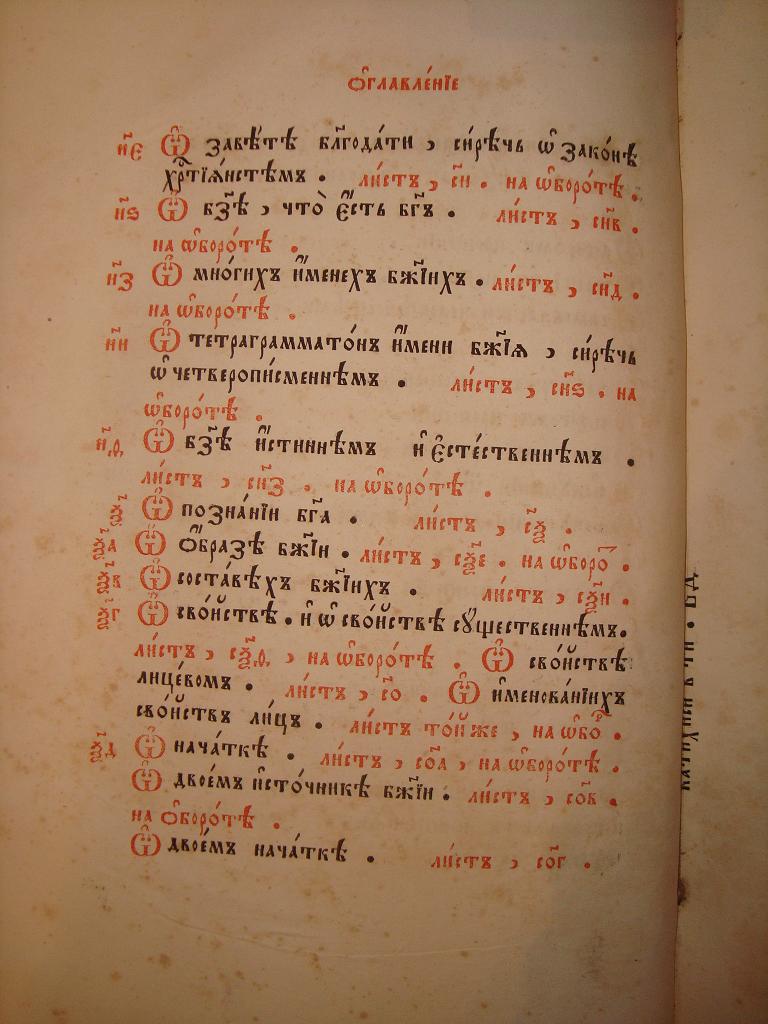 Ѻ҆главле́нїе
н҃є Ѿ завѣ́тѣ бл҃года́ти , си́рѣчь ѡ҆ зако́нѣ
хр҃тїѧ́нстѣмъ . ли́стъ , с҃н . на ѡ҆боро́тѣ .
н҃ѕ Ѿ бз҃ѣ , что̀ є҆́сть бг҃ъ . ли́стъ , сн҃в .
на ѡ҆боро́тѣ .
н҃з Ѿ мно́гихъ и҆́менехъ бж҃їихъ . ли́стъ , сн҃д .
на ѡ҆боро́тѣ .
н҃и Ѿ тетраграммато́нъ и҆́мени бж҃їѧ , си́рѣчь
ѡ҆ четверопи́сменнѣмъ . ли́стъ , сн҃ѕ . на
ѡ҆боро́тѣ .
н҃ѳ Ѿ бз҃ѣ и҆́стиннѣмъ и҆ є҆сте́ственнѣмъ .
ли́стъ , сн҃з . на ѡ҆боро́тѣ .
ѯ҃ Ѿ позна́нїи бг҃а . ли́стъ , с҃ѯ .
ѯ҃а Ѿ ѻ҆́бразѣ бж҃їи . ли́стъ , сѯ҃є . на ѡ҆боро́ .
ѯ҃в Ѿ соста́вѣхъ бж҃їихъ . ли́стъ , сѯ҃и .
ѯ҃г Ѿ сво́йствѣ . и҆ ѡ҆ сво́йствѣ сꙋ́щественнѣмъ .
ли́стъ , сѯ҃ѳ , на ѡ҆боро́тѣ . Ѿ сво́йствѣ
лице́вомъ . ли́стъ , с҃о . Ѿ и҆менова́нїихъ
сво́йствъ ли́цъ . ли́стъ то́й же , на ѡ҆бо́ .
ѯ҃д Ѿ нача́ткѣ . ли́стъ , со҃а , на ѡ҆боро́тѣ .
Ѿ двое́мъ и҆сто́чникѣ бж҃їи . ли́стъ , со҃в .
на ѻ҆боро́тѣ .
Ѿ двое́мъ нача́ткѣ . ли́стъ , со҃г .